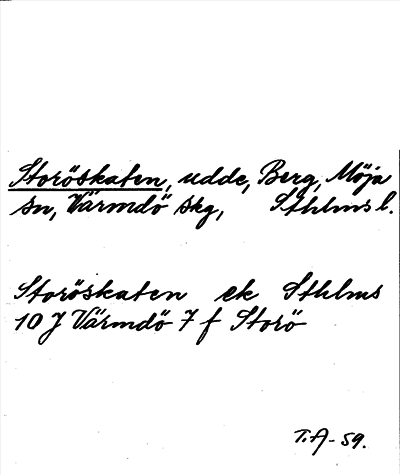 Storöskaten, udde, Berg, Möja
sn, Värmdö skg, Sthlms l.
Storöskaten ek Sthlms
10 J Värmdö 7 f Storö
T.A-59.